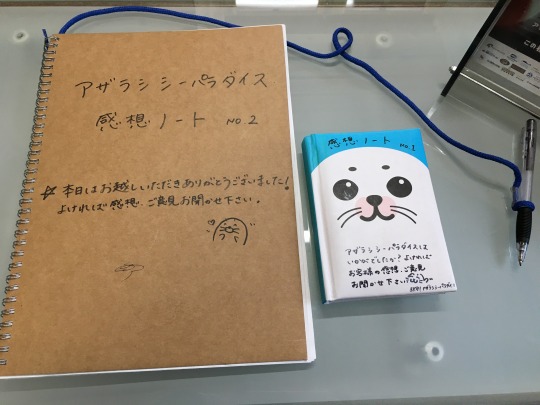 アザラシ シーパラダイス
感想ノート NO.2
☆ 本日はお越しいただきありがとうございました!
よければ感想、ご意見お聞かせ下さい。
感想ノート NO.1
アザラシシーパラダイスは
いかがでしたか?よければ
お客様の感想、ご意見
お聞かせ下さい